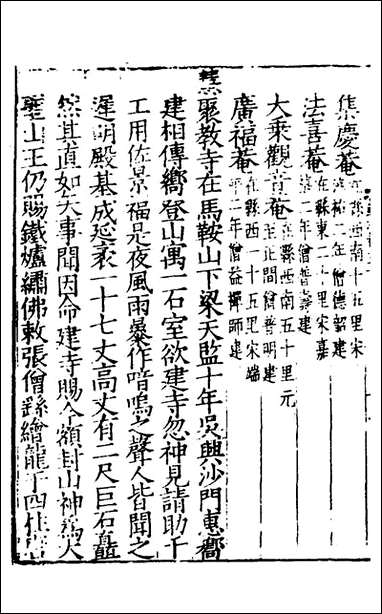 集慶菴在縣西南十五里宋
德祐二年僧德韶建
法喜菴在縣東二十里宋嘉
泰二年僧普壽建
大乘觀音菴在縣西南五十里元
至正間僧普明建
廣福菴在縣西一十五里宋端
平二年僧益禪師建
慧聚教寺在馬鞍山下梁天監十年吳興沙門惠嚮
建相傳嚮登山寓一石室欲建寺忽神見請助千
工用佐景福是夜風雨暴作喑嗚之聲人皆聞之
遲明殿基成延袤一十七丈高丈有二尺巨石矗
然其直如矢事聞因命建寺賜今額封山神為大
聖山王仍賜鐵爐繡佛敕張僧繇繪龍于四柱